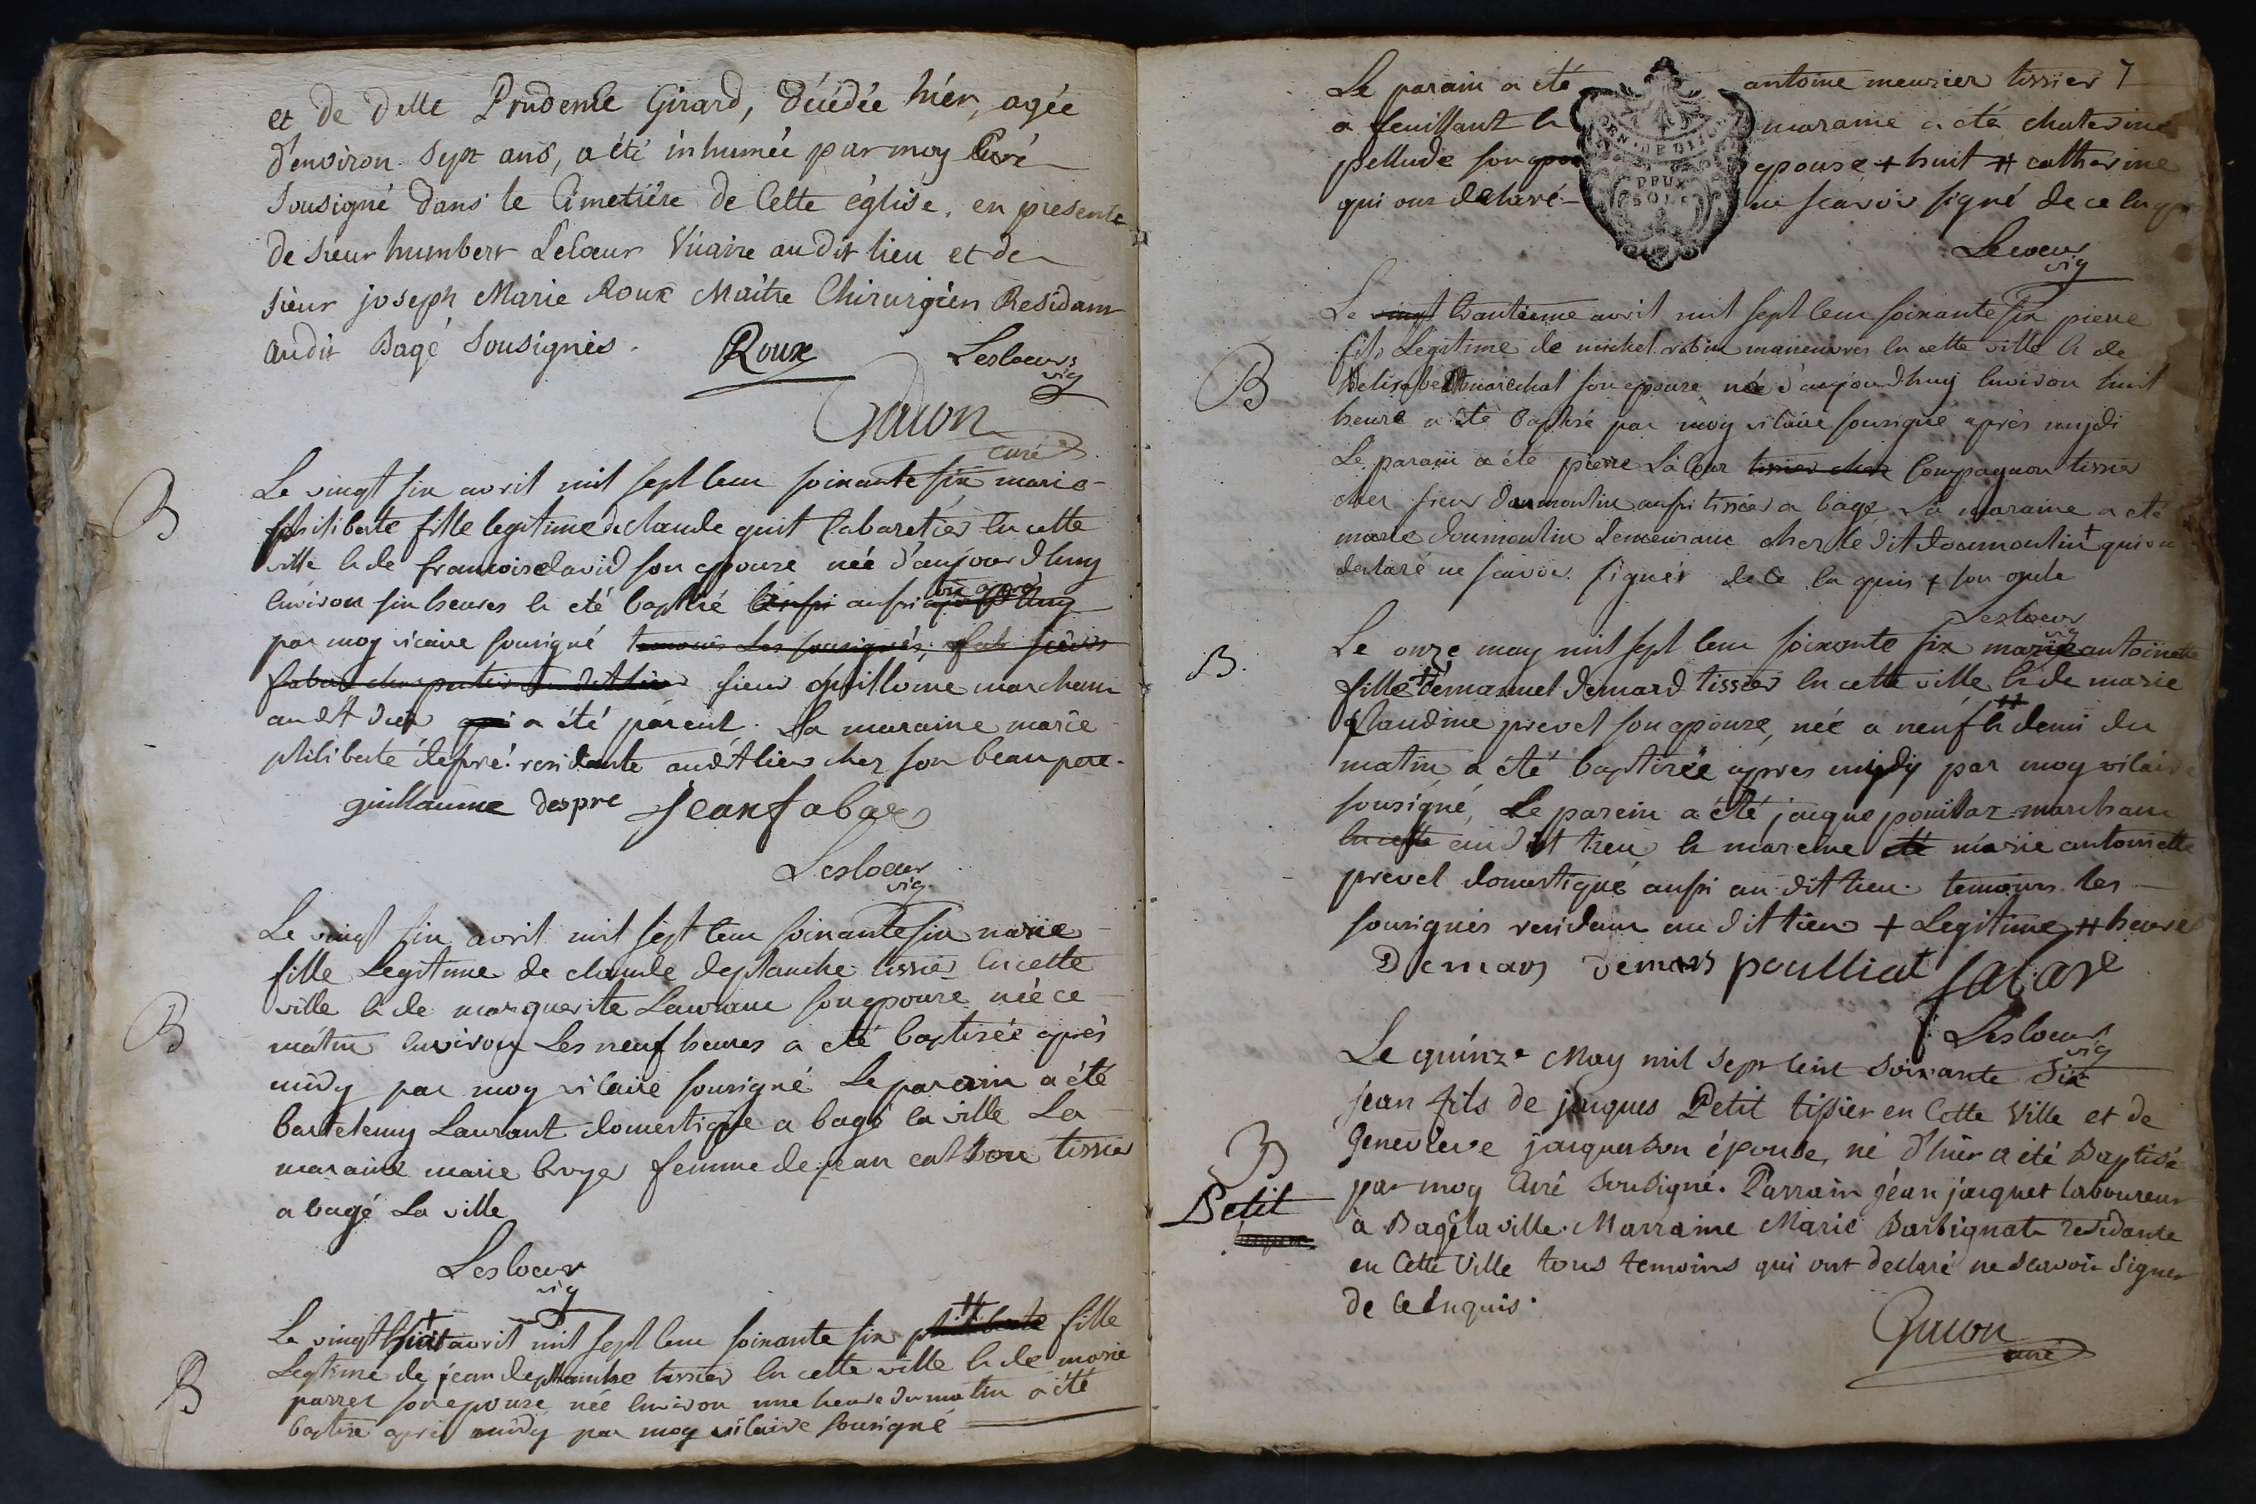 et de delle Prudence Girard, décédée hier, agée
d'environ sept ans, a été inhumée par moy Curé
sousigné dans le Cimetière de Cette église, en presence
de sieur humbert LesCoeur Vicaire audit lieu et de
sieur joseph Marie Roux Maître Chirurgien Residant
audit Bagé Sousignés. Roux Lescoeur
vic
Gacon
curé
B
Le vingt six avril mil sept cent soixante six marie
philiberte fille legitime de claude guit Cabaretier en cette
ville et de francoise david son epouse née d'aujourdhuy
environ six heures et eté baptisé aussi
par moy vicaire sousigné temoins les sousignés,
sieur guillome marchant
audit lieu qui a été parent. La maraine marie
philiberte depré residante audit lieu chez son beau pere.
guillaume despre Jean fabar
Lescoeur
vic
B
Le vingt six avril mil sept cent soixante six marie
fille Legitime de claude deplanche tissier en cette
ville et de marguerite Laurant son epouse née ce
matin environ Les neuf heures a eté baptisée après
midy par moy vicaire sousigné Le parain a été
bartelemy Laurant domestique a bagé la ville La
maraine marie broyer femme de jean tissier
a bagé La ville
Lescoeur
vic
B
Le vingt huit avril mil sept cent soixante six philiberte fille
Legitime de jean deplanche tissier en cette ville et de marie
parret son epouse née environ une heure du matin a été
baptisé après midy par moy vicaire sousigné
Le parain a été antoine meurier tissier 7
a feuillant et marame a été chaterine
pellude son epouse + huit # catherine
qui ont declaré ne scavoir signé de ce enqs
DEUX
SOLS
Lescoeur
vic
B
Le vingt trantieme avril mil sept cent soixante six pierre
fils Legitime de michel robin maneuvres en cette ville et de
elisabet marechal son epouse née d'aujourdhuy environ huit
heure a été baptisé par moy vicaire sousigné après midi
Le parain a été pierre La cour tissier chez Compagnon tissier
chez sieur dumoulin aussi tissier a bagé La maraine a été
marie doumoulin demeurant chez le dit doumoulin + qui on
declaré ne scavoir signér de ce en quis + son oncle
Lescoeur
vic
B.
Le onze may mil sept cent soixante six marie antoinette
fille + d'emanuel demard tissier en cette ville et de marie
claudine prevel son epouse, née a neuf # et demi du
matin a été baptisée apres midy par moy vicaire
sousigné, Le parein a été jacque pouillar marchant
en cette audit lieu et mareine été marie antoinette
prevel domestique aussi au dit lieu. temoins les
sousignés residant au dit lieu + Legitime # heures
Demars demars poulliat fabare
Lescoeur
vic
B
Petit
Le quinze May mil sept cent soixante six
jean fils de jacques Petit tissier en Cette Ville et de
Genevieve jacquet son épouse, né d'hier a été Baptisé
par moy Curé Sousigné. Parrain jéan jacquet laboureur
à Bagé la ville. Marraine Marie Barbignat residante
en Cette Ville tous temoins qui ont declaré ne scavoir signer
de ce enquis.
Gacon
curé